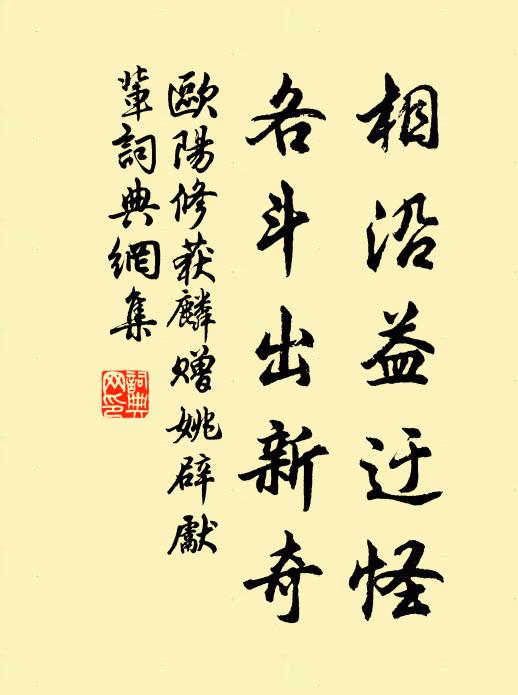 相沿益迂怪
各斗出新奇
歐陽修获麟赠姚辟獻
葷詞典網集
詞典
网印